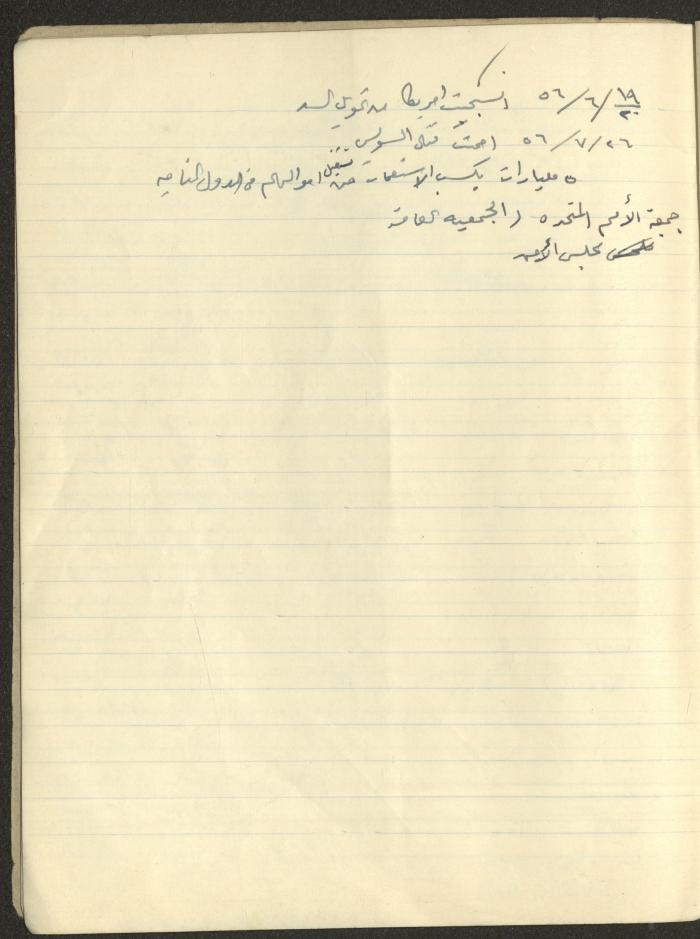 ١٩/٢٠ /٦/ ٥٦ انسحبت امريكا من تمويل السد
٢٦ /٧/ ٥٦ اممت قنال السويس
٥ مليارات يكسب الاستعمار من تشغيل اموالهم فى الدول الناميه
جمعية الأمم المتحده / الجمعيه العامة
مجلس الأمن